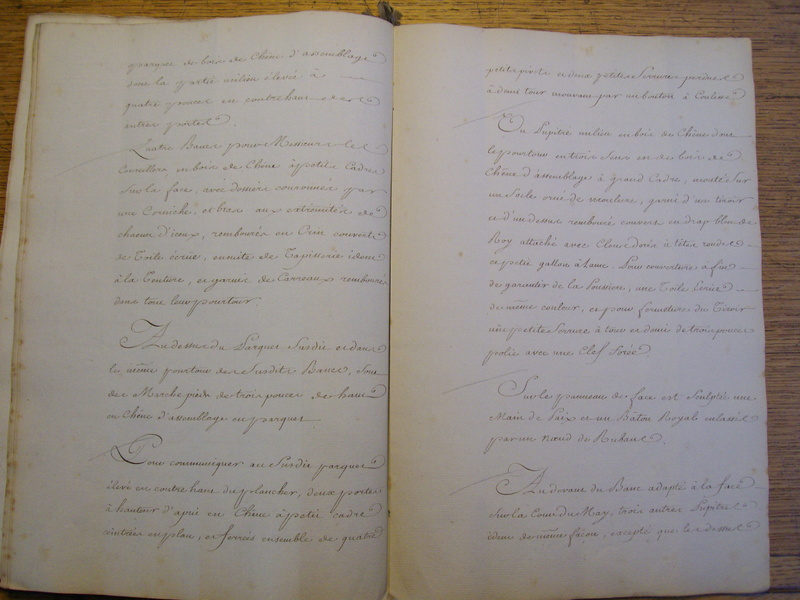 parquet de bois de Chêne d'assemblage
dont la partie milieu élevée à
quatre pouces en contrehaut des
autres portes.
Quatre Bancs pour Messieurs les
Conseillers en bois de Chêne à petits Cadres
Sur la face, avec dossiers couronnés par
une Corniche, et bras aux extrémités de
chacun d'iceux, rembourés en Crin couvert
de Toile écrüe, ensuite de Tapisserie idem
à la Tenture, et garnis de Carreaux rembourés
dans tout leur pourtour.
Au dessus du Parquet Susdit et dans
le même pourtour des Susdits Bancs, sont
des Marchepieds de trois pouces de haut
en Chêne d'assemblage en parquet.
Pour communiquer au Susdit parquet
élevé en contrehaut du plancher, deux portes
à hauteur d'apui en Chêne à petit cadre
cintrées en plan, et ferrées ensemble de quatre
petites et deux petites Serrures perdues
à demi tour mouvant par un bouton à Coulisse
Un Pupitre milieu en bois de Chêne dont
le pourtour en trois Sens est de bois de
Chêne d'assemblage à grand Cadre, monté Sur
un Socle orné de moulure, garni d'un tiroir
et d'un dessus rembouré couvert en drap bleu de
Roy attaché avec Clous dorés à têtes rondes
et petit gallon à Lame. Pour couverture afin
de garantir de la Poussiere, une Toile
de même couleur, et pour fermeture du Tiroir
une petite Serrure à tour et demi de trois pouces
polie avec une Clef forée.
Sur le panneau de face est Sculpté une
Main de Justice et un Bâton Royale enlassés
par un nœud de Rubans.
Au devant du Banc adapté à la face
Sur la Cour du May, trois autres Pupitres
idem de même façon, excepté que les dessus